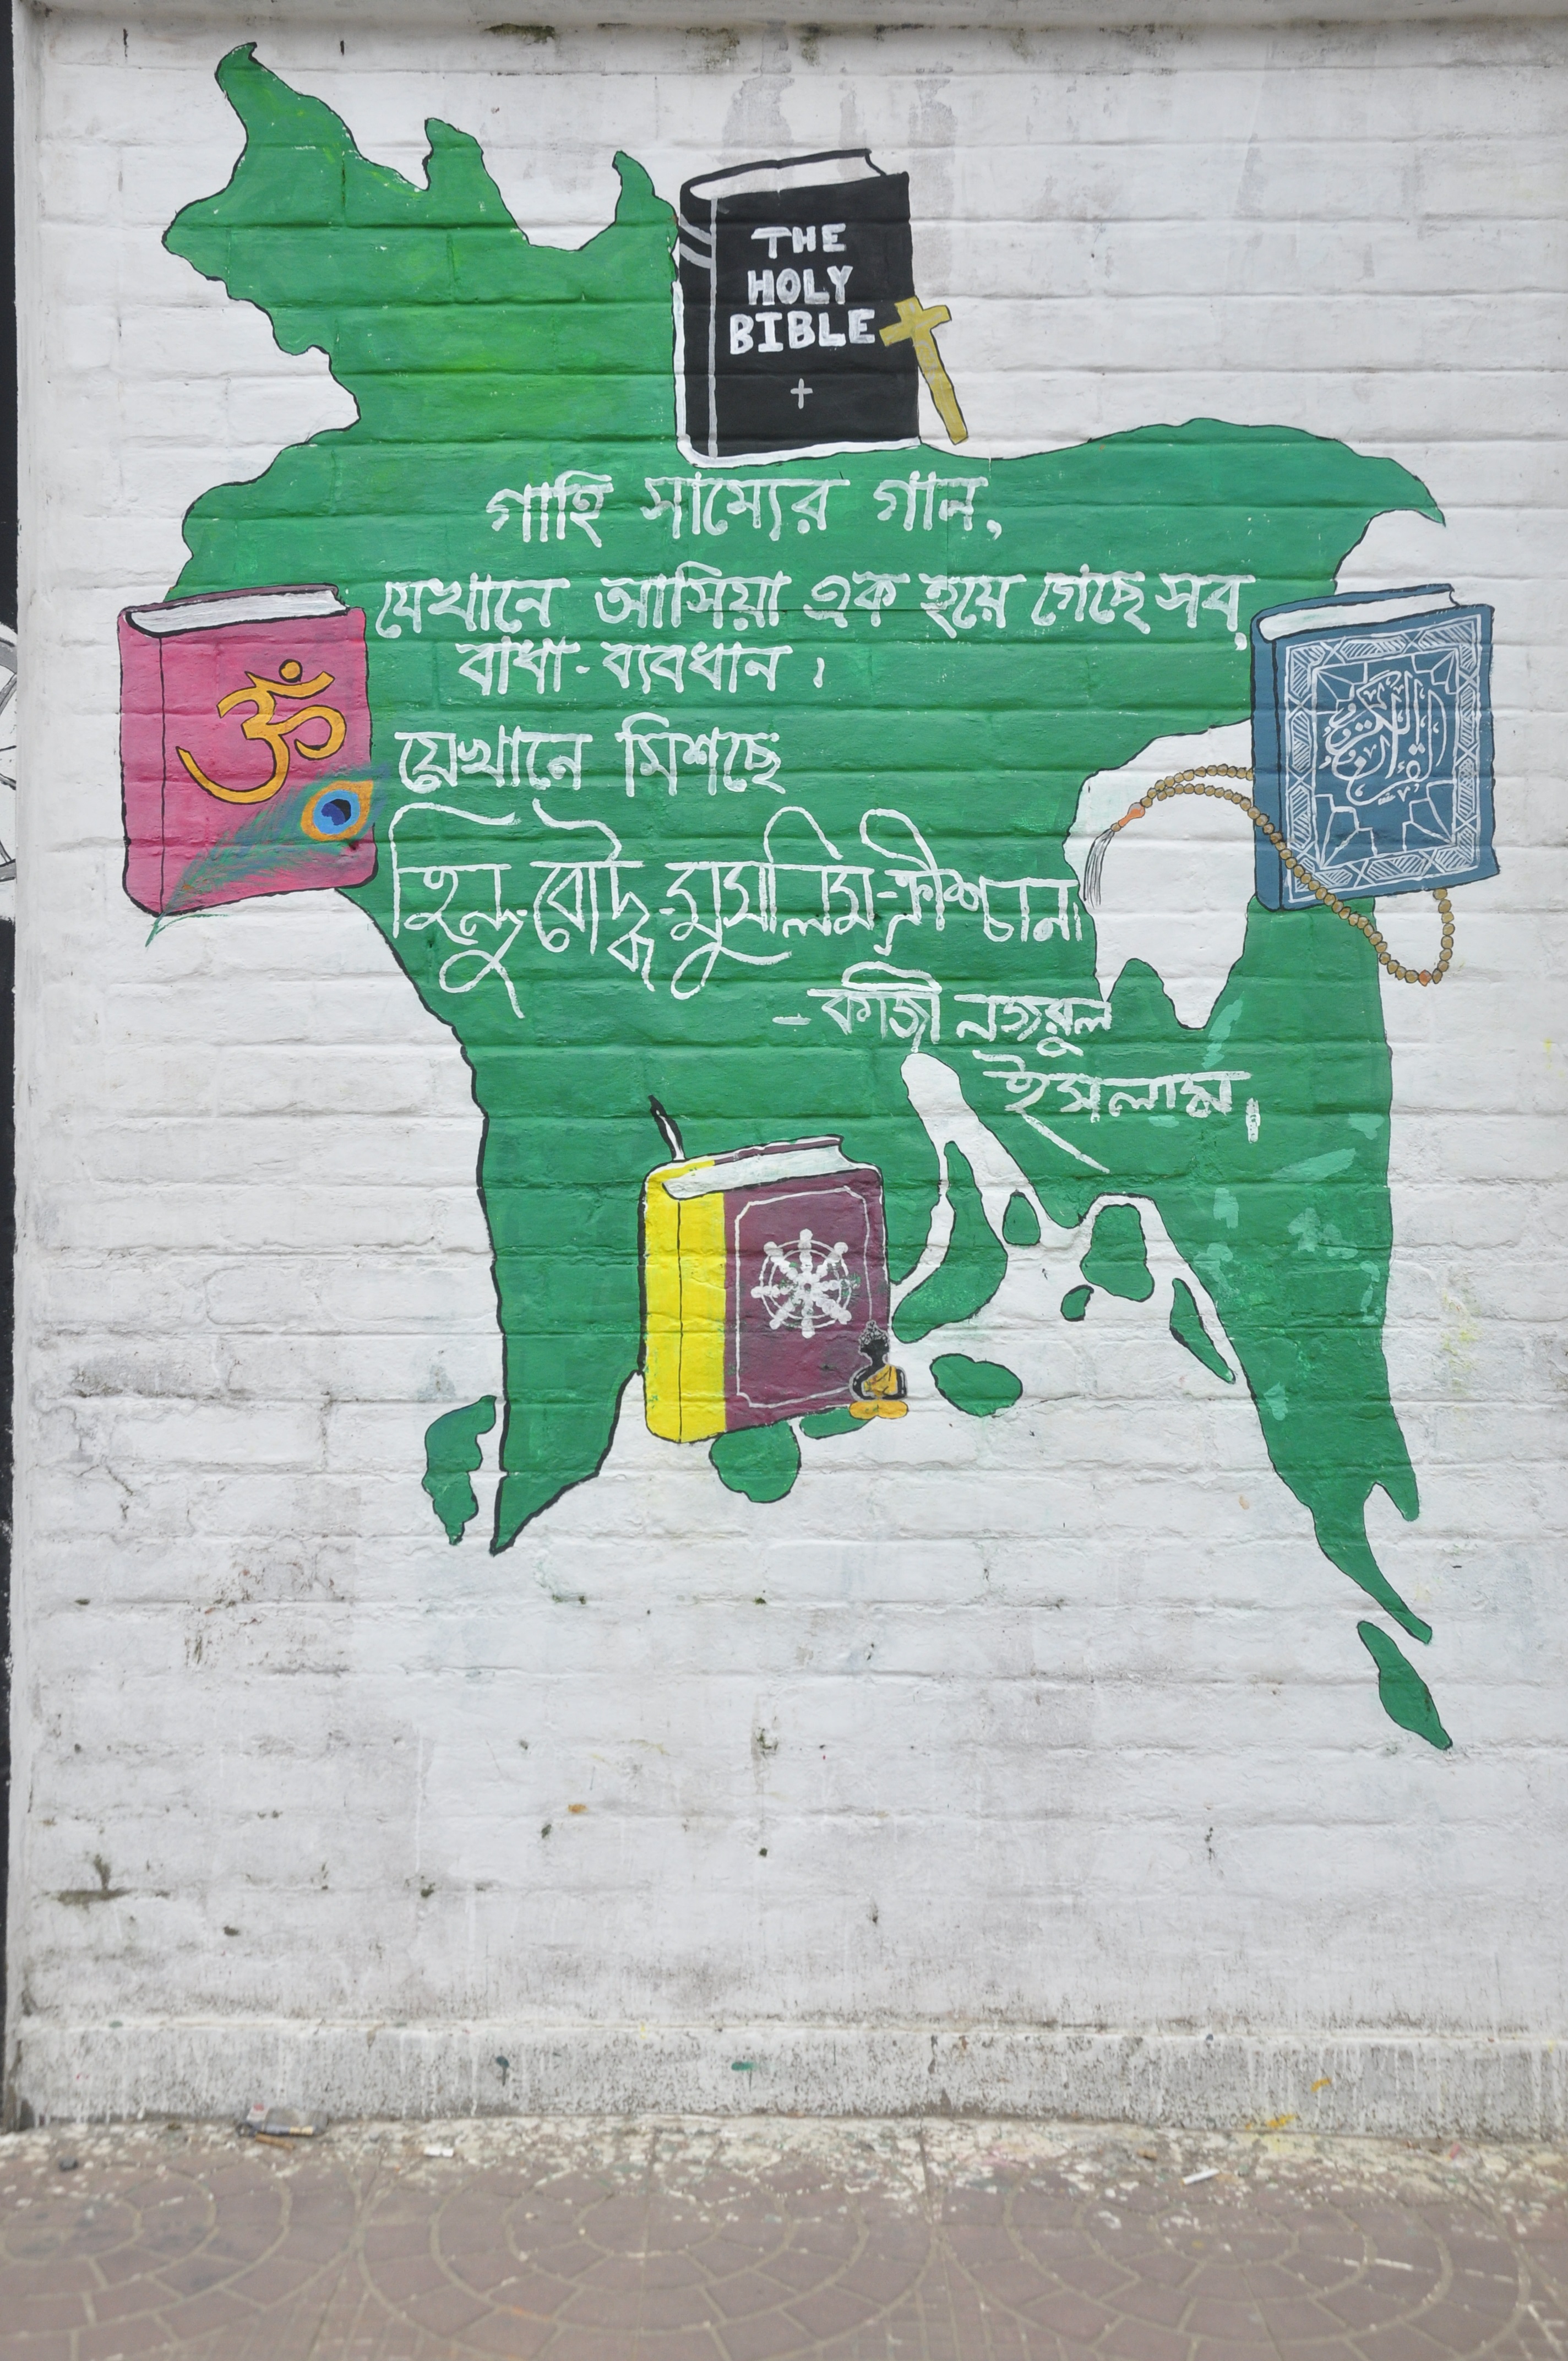 THE
HOLY
BIBLE
গাহি সাম্যের গান,
যেখানে আসিয়া এক হয়ে গেছে সব
বাধা-ব্যবধান।
যেখানে মিশছে
হিন্দু-বৌদ্ধ-মুসলিম-ক্রীশ্চান।
- কাজী নজরুল
ইসলাম।
ॐ
القرآن الكريم